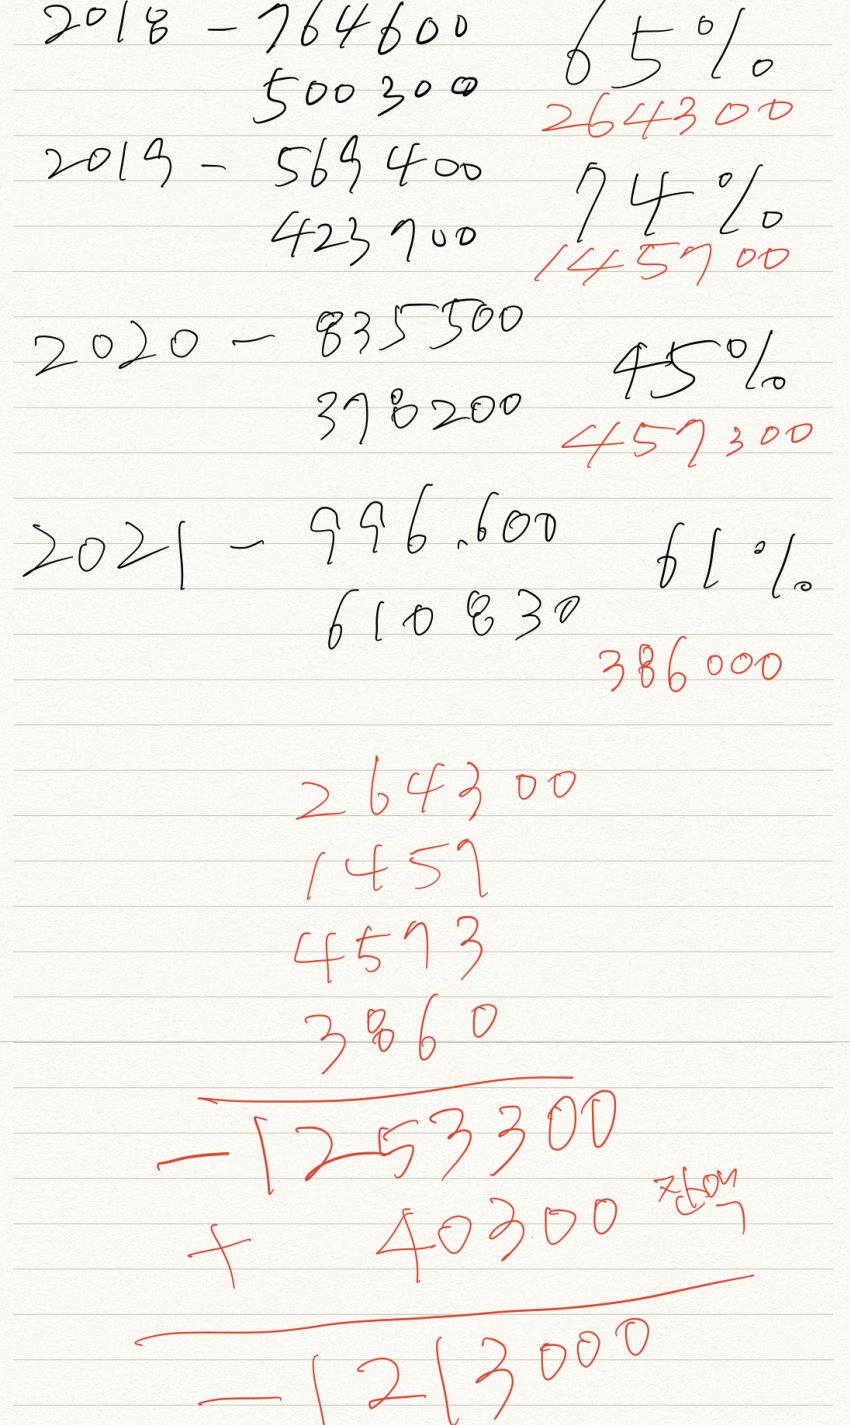 2018 - 764600 65%
500300 264300
2019 - 569400 74%
423700 145700
2020 - 835500 45%
378200 457300
2021 - 996.600 61%
610830
386000
264300
1457
4573
3860
-1253300
+ 40300 잔액
-1213000